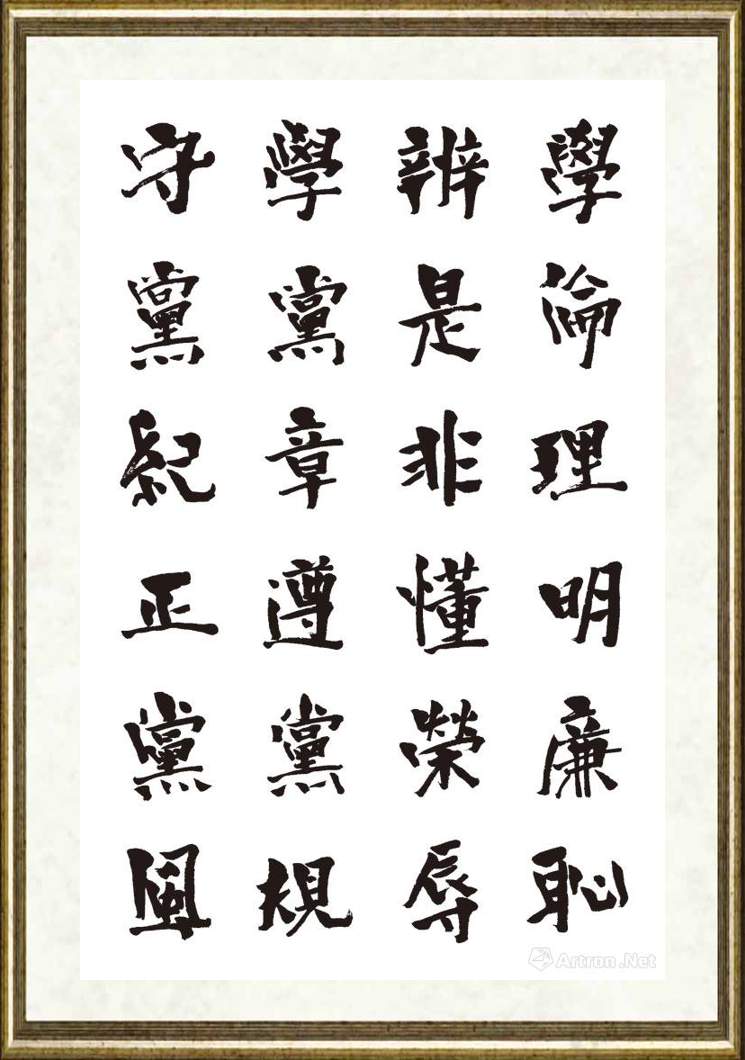 學倫理明廉恥
辨是非懂榮辱
學黨章遵黨規
守黨紀正黨風
Artron.Net